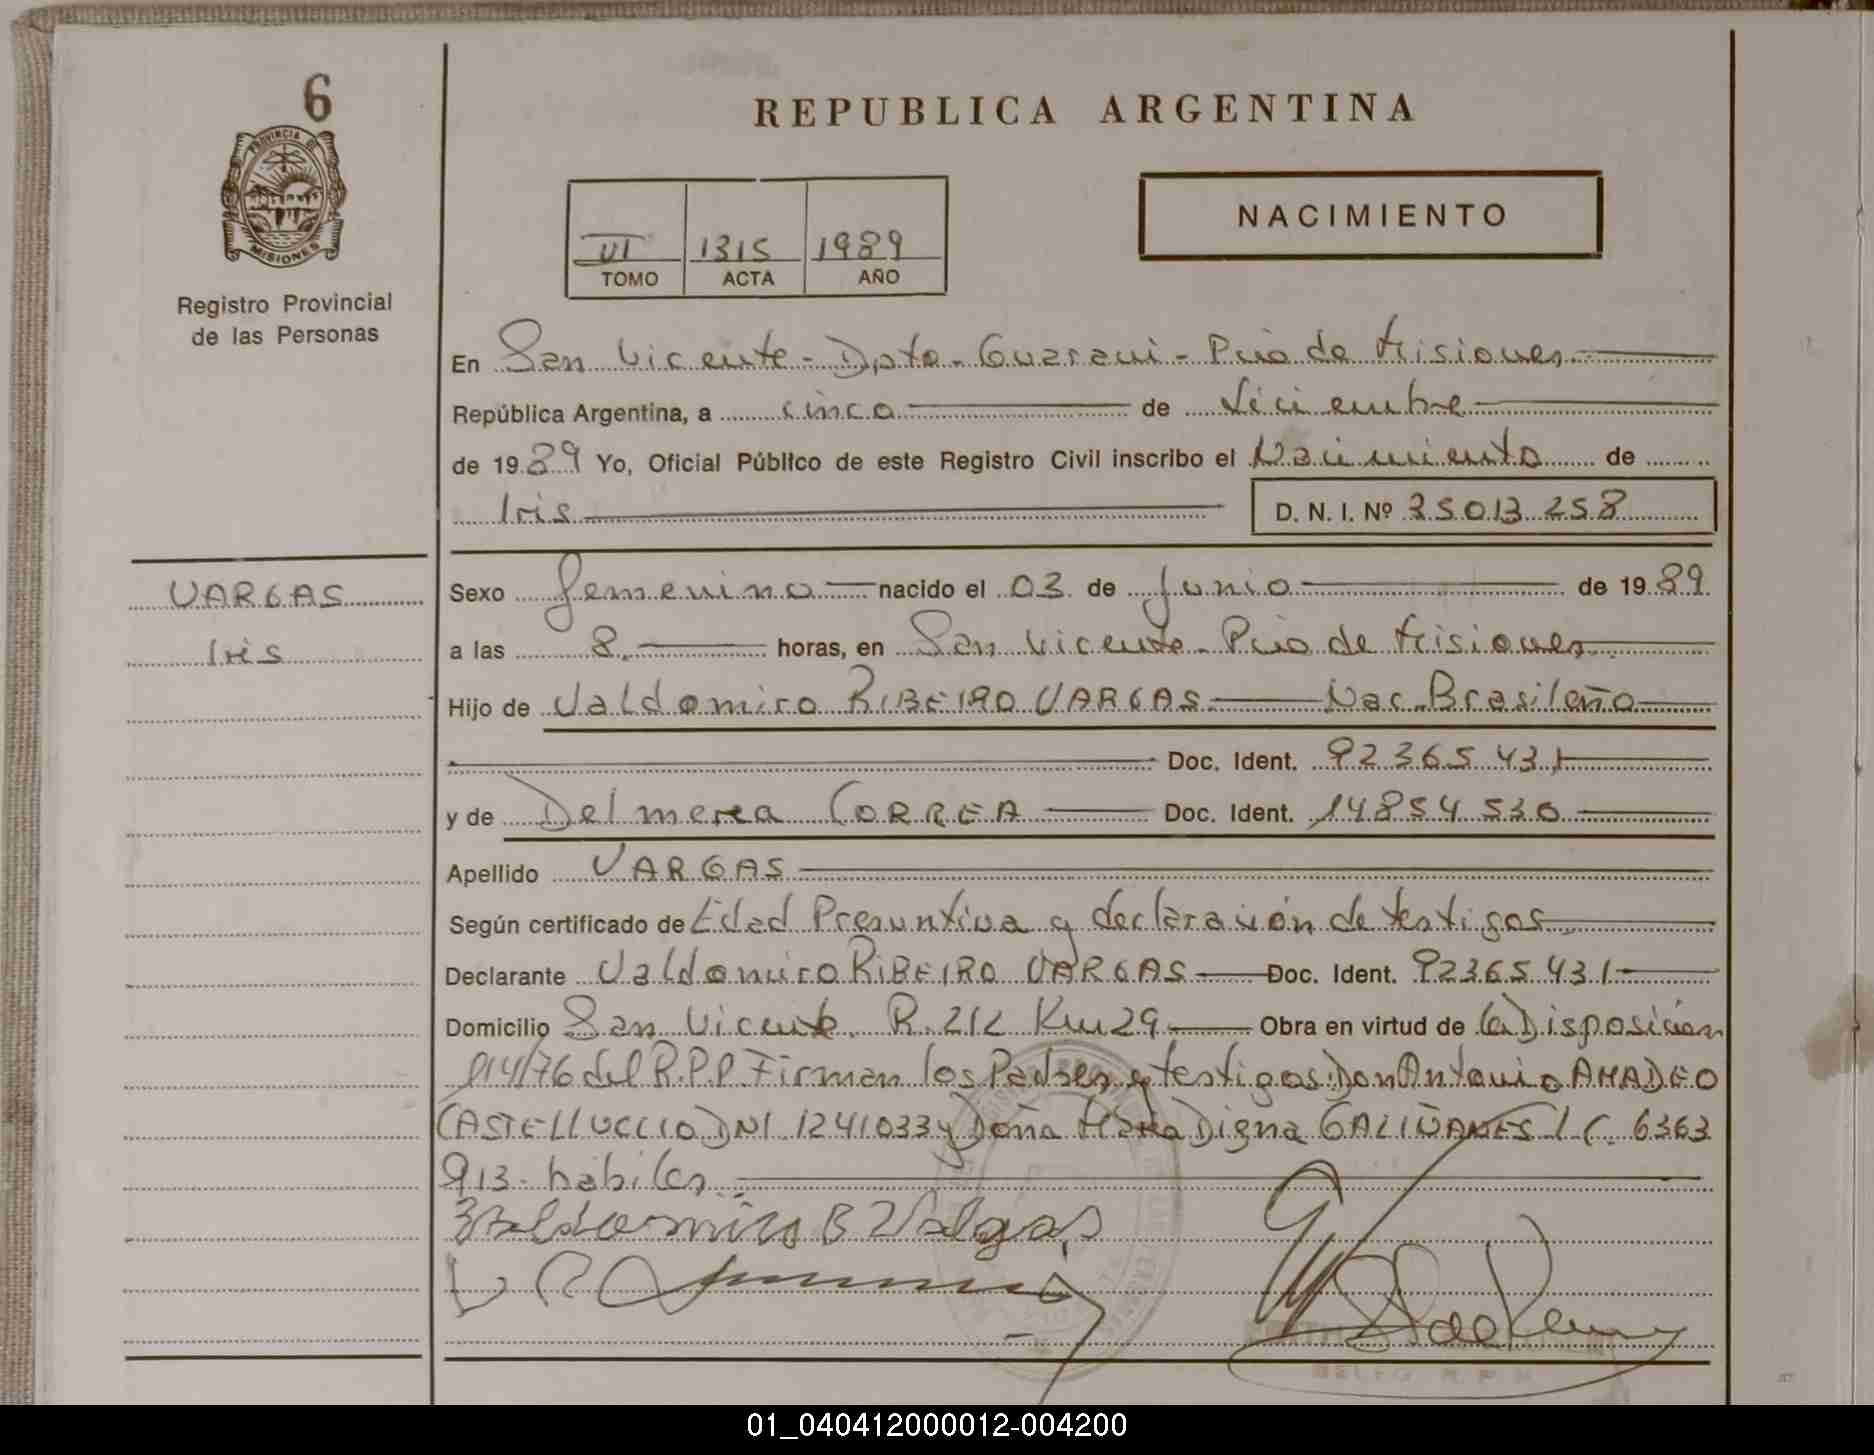 6
PROVINCIA DE
MISIONES
Registro Provincial
de las Personas
REPUBLICA ARGENTINA
NACIMIENTO
VI 1315 1989
TOMO ACTA AÑO
En San Vicente - Dpto - Guarani - Pcia de Misiones
República Argentina, a cinco de Diciembre
de 1989 Yo, Oficial Público de este Registro Civil inscribo el Nacimiento de
Iris D. N. I. Nº 35013 258
VARGAS
Iris
Sexo femenino nacido el 03 de Junio de 1989
a las 8. horas, en San Vicente - Pcia de Misiones
Hijo de Valdomiro RIBEIRO VARGAS Nac. Brasileño
Doc. Ident. 92365431
y de Delmera CORREA Doc. Ident. 14854530
Apellido VARGAS
Según certificado de Edad Presuntiva y declaración de testigos
Declarante Valdomiro RIBEIRO VARGAS Doc. Ident. 92365431
Domicilio San Vicente. R. 212 Km 29 Obra en virtud de la Disposición
914/76 del R.P.P. Firman los Padres y testigos Don Antonio AMADEO
CASTELLUCCIO DNI 1241033 y Doña Maria Digna GALIÑANES L C. 6363
913. hábiles
01_040412000012-004200